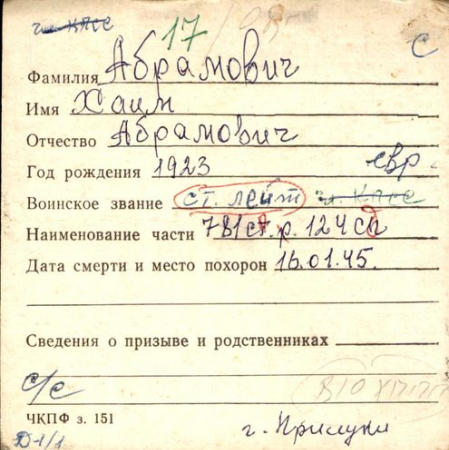 чл. КПСС 17
с
Фамилия Абрамович
Имя Хаим
Отчество Абрамович
Год рождения 1923 евр.
Воинское звание ст. лейт чл. КПСС
Наименование части 781 р. 124 сд
Дата смерти и место похорон 16.01.45.
Сведения о призыве и родственниках
с/с
ЧКПФ з. 151
г. Прилуки
Д-1/1